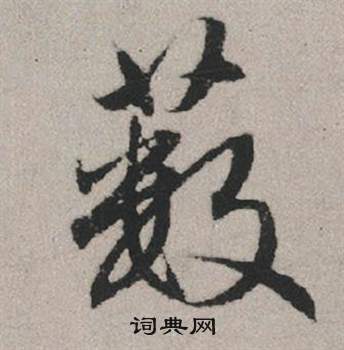 薮
词典网